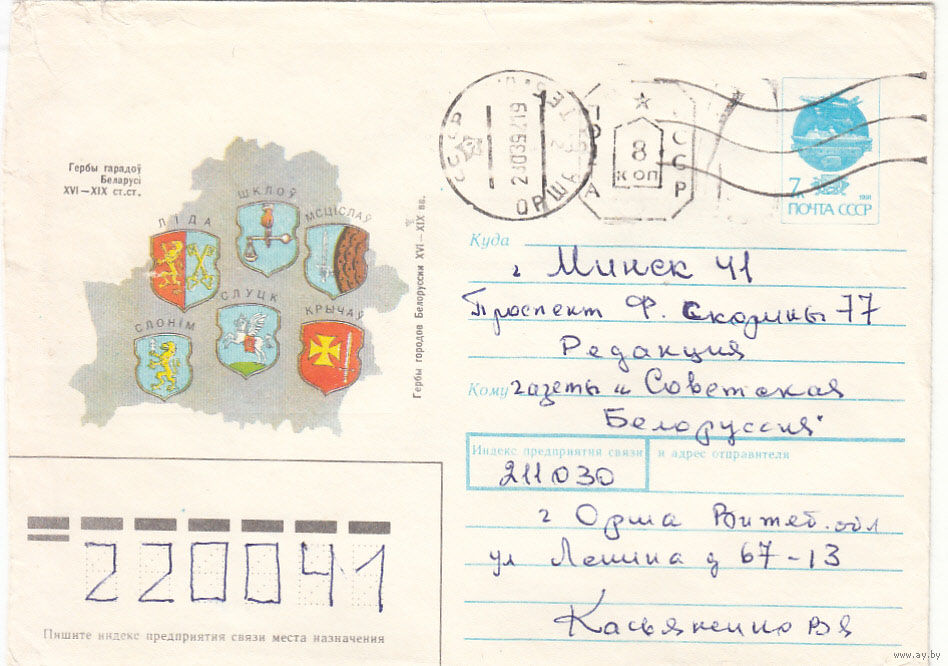 Гербы гарадоў
Беларусі
XVI—XIX ст.ст.
ЛІДА
ШКЛОЎ
МСЦІСЛАЎ
СЛОНІМ
СЛУЦК
КРЫЧАЎ
Гербы городов Белоруссии XVI—XIX вв.
СССР
ОРША
8
КОП
СССР
7к
1991
ПОЧТА СССР
Куда
г Минск 41
Проспект Ф. Скорины 77
Редакция
Кому газеты „Советская
Белоруссия"
Индекс предприятия связи и адрес отправителя
211030
г Орша Витеб. обл
ул Ленина д 67-13
Касьяненко ВЯ
220041
Пишите индекс предприятия связи места назначения
www.ay.by